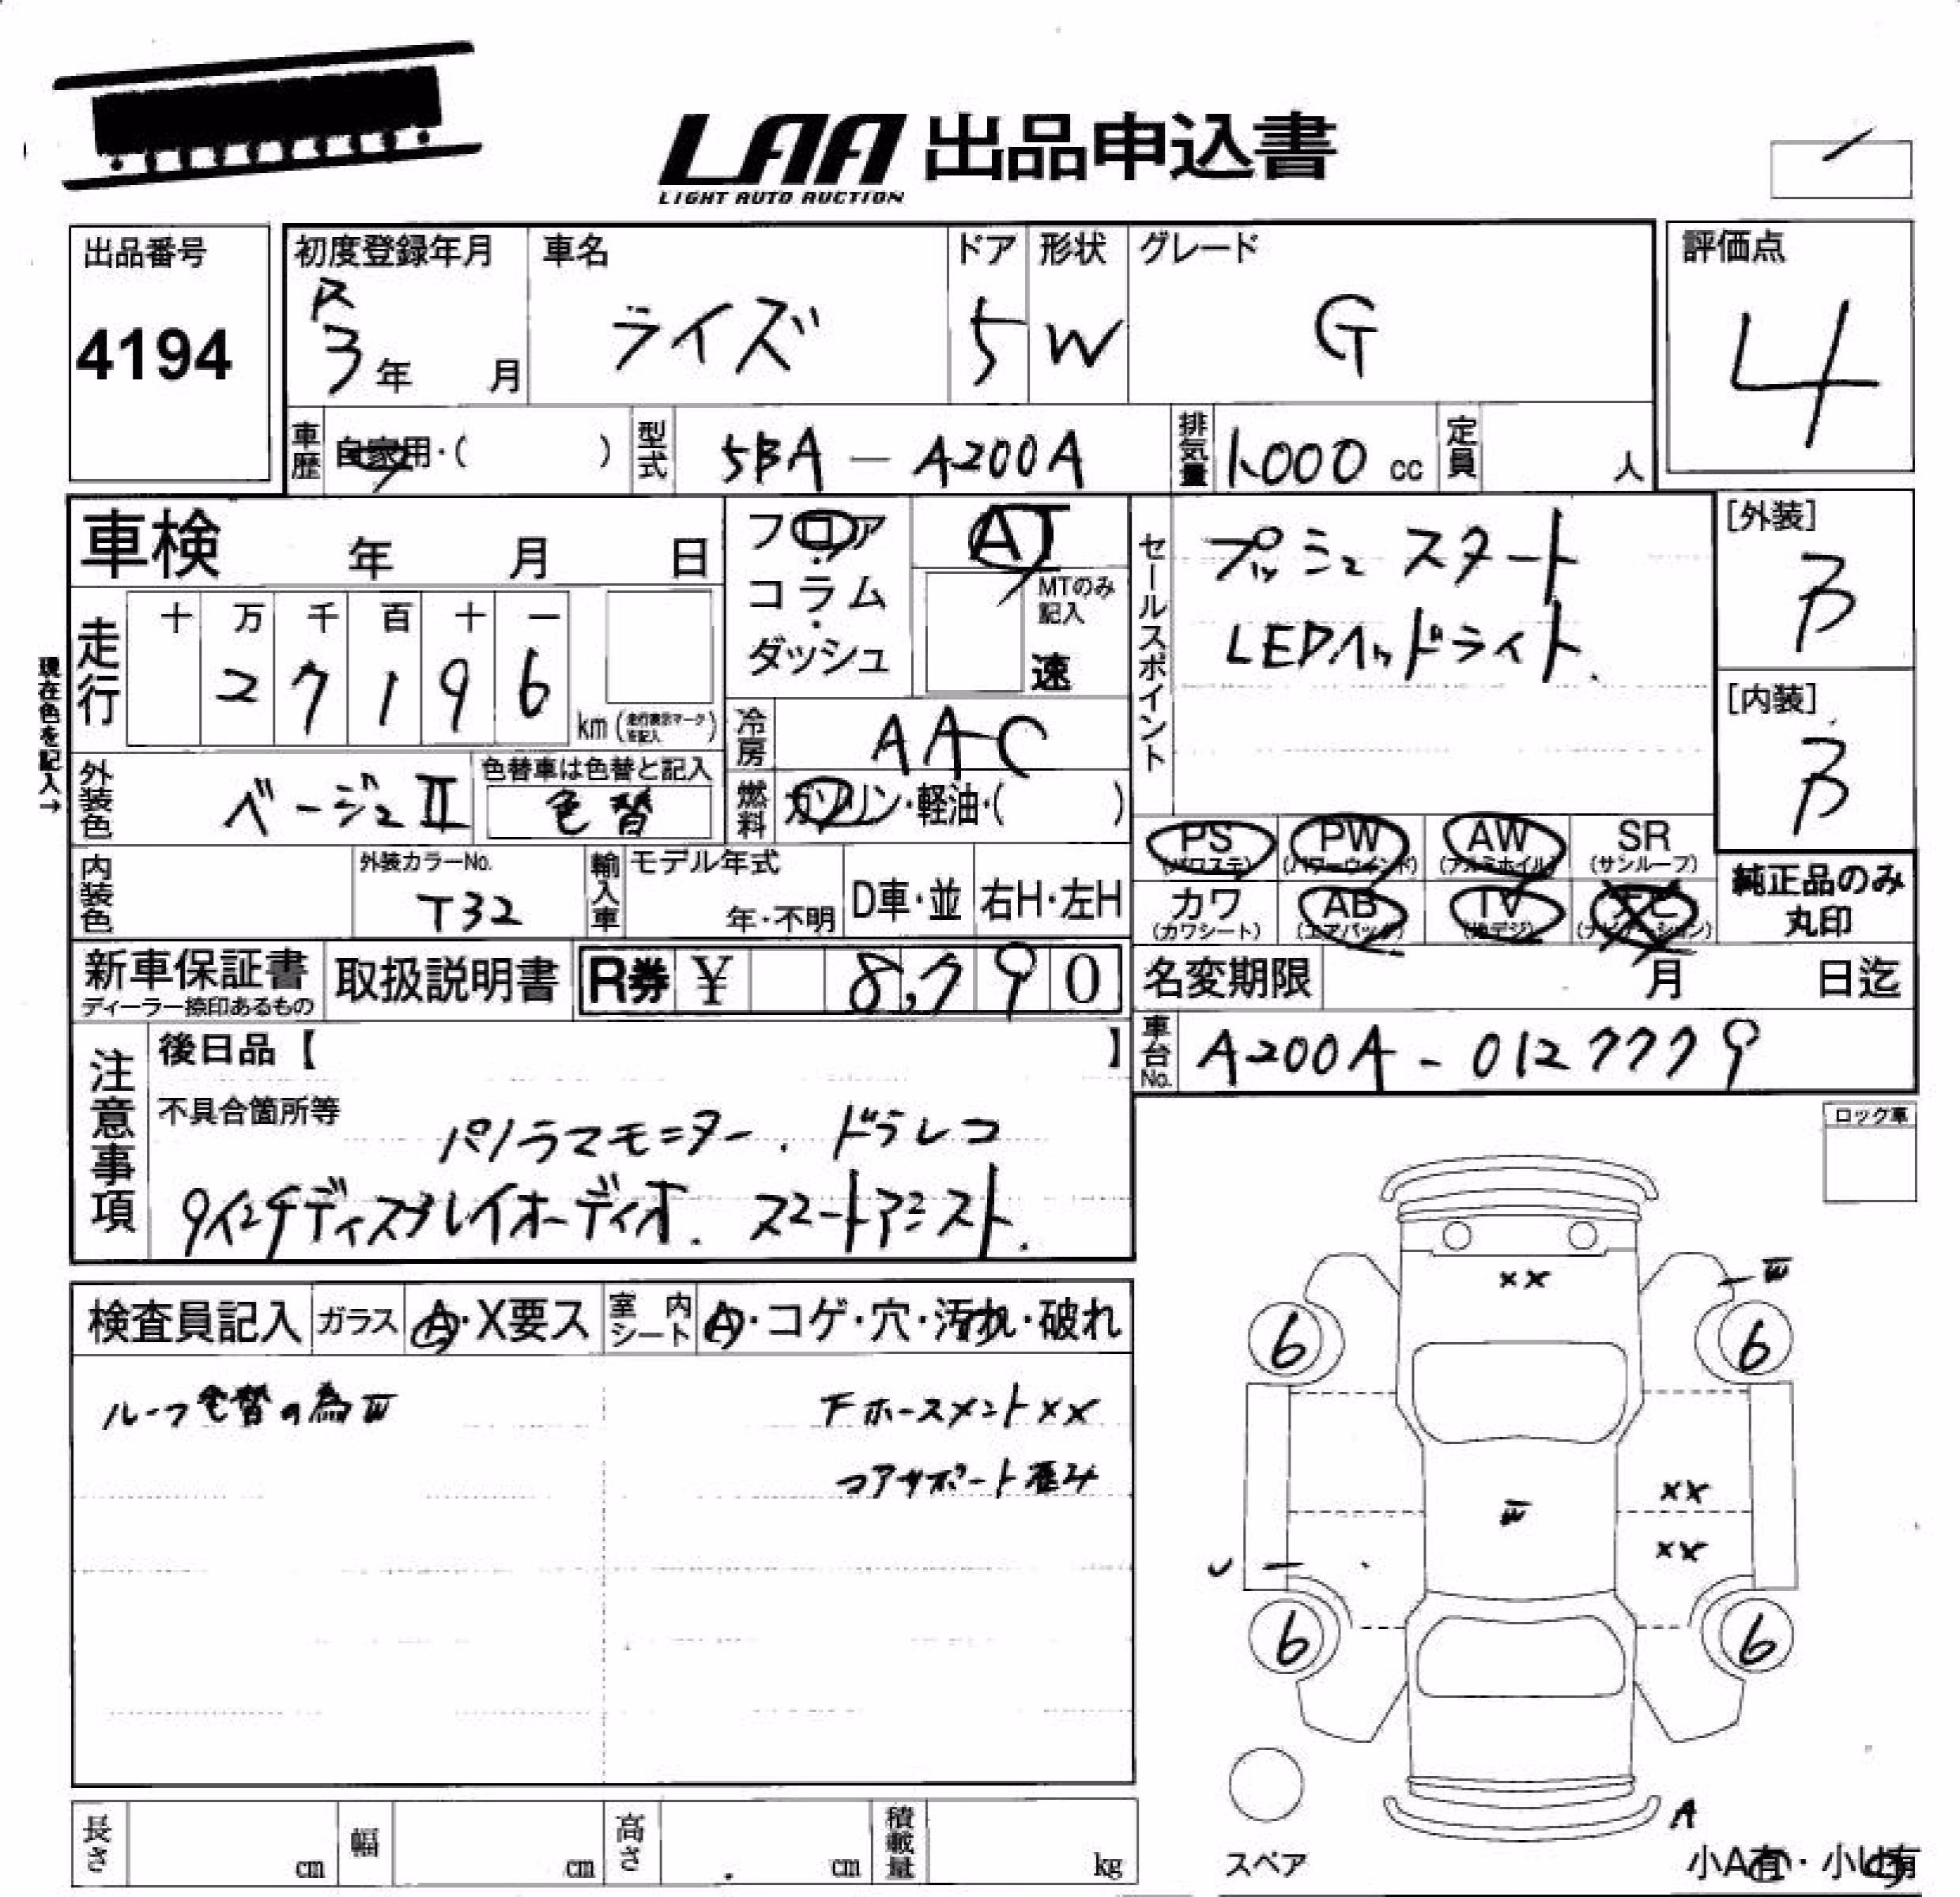 LAA 出品申込書
LIGHT AUTO AUCTION
出品番号
4194
初度登録年月
R
3年 月
車名
ライズ
ドア
5
形状
W
グレード
G
評価点
4
車歴
自家用・( )
型式
5BA - A200A
排気量
1,000 cc
定員
人
車検 年 月 日
走行
十 万 千 百 十 一
2 7 1 9 6
km (走行表示マークを記入)
現在色を記入→
フロア
コラム
ダッシュ
AT
MTのみ
記入
速
冷房
AAC
燃料
ガソリン・軽油・( )
セールスポイント
プッシュスタート
LEDヘッドライト.
[外装]
B
[内装]
B
外装色
ベージュII
色替車は色替と記入
色替
内装色
外装カラーNo.
T32
輸入車
モデル年式
年・不明
D車・並
右H・左H
PS
(パワステ)
PW
(パワーウインド)
AW
(アルミホイル)
SR
(サンルーフ)
カワ
(カワシート)
AB
(エアバッグ)
TV
(地デジ)
ナビ
(ナビゲーション)
純正品のみ
丸印
新車保証書
ディーラー捺印あるもの
取扱説明書
R券 ¥ 8,790
名変期限 月 日迄
車台No.
A200A - 0127779
注意事項
後日品【 】
不具合箇所等
パノラマモニター. ドラレコ
9インチディスプレイオーディオ. スマートアシスト.
ロック車
検査員記入
ガラス
A・X要ス
室内シート
A・コゲ・穴・汚れ・破れ
ルーフ色替の為W
FホースメントXX
コアサポート歪み
XX
W
6
6
XX
W
XX
U
6
6
A
スペア
小A有・小U有
長さ cm
幅 cm
高さ cm
積載量 kg